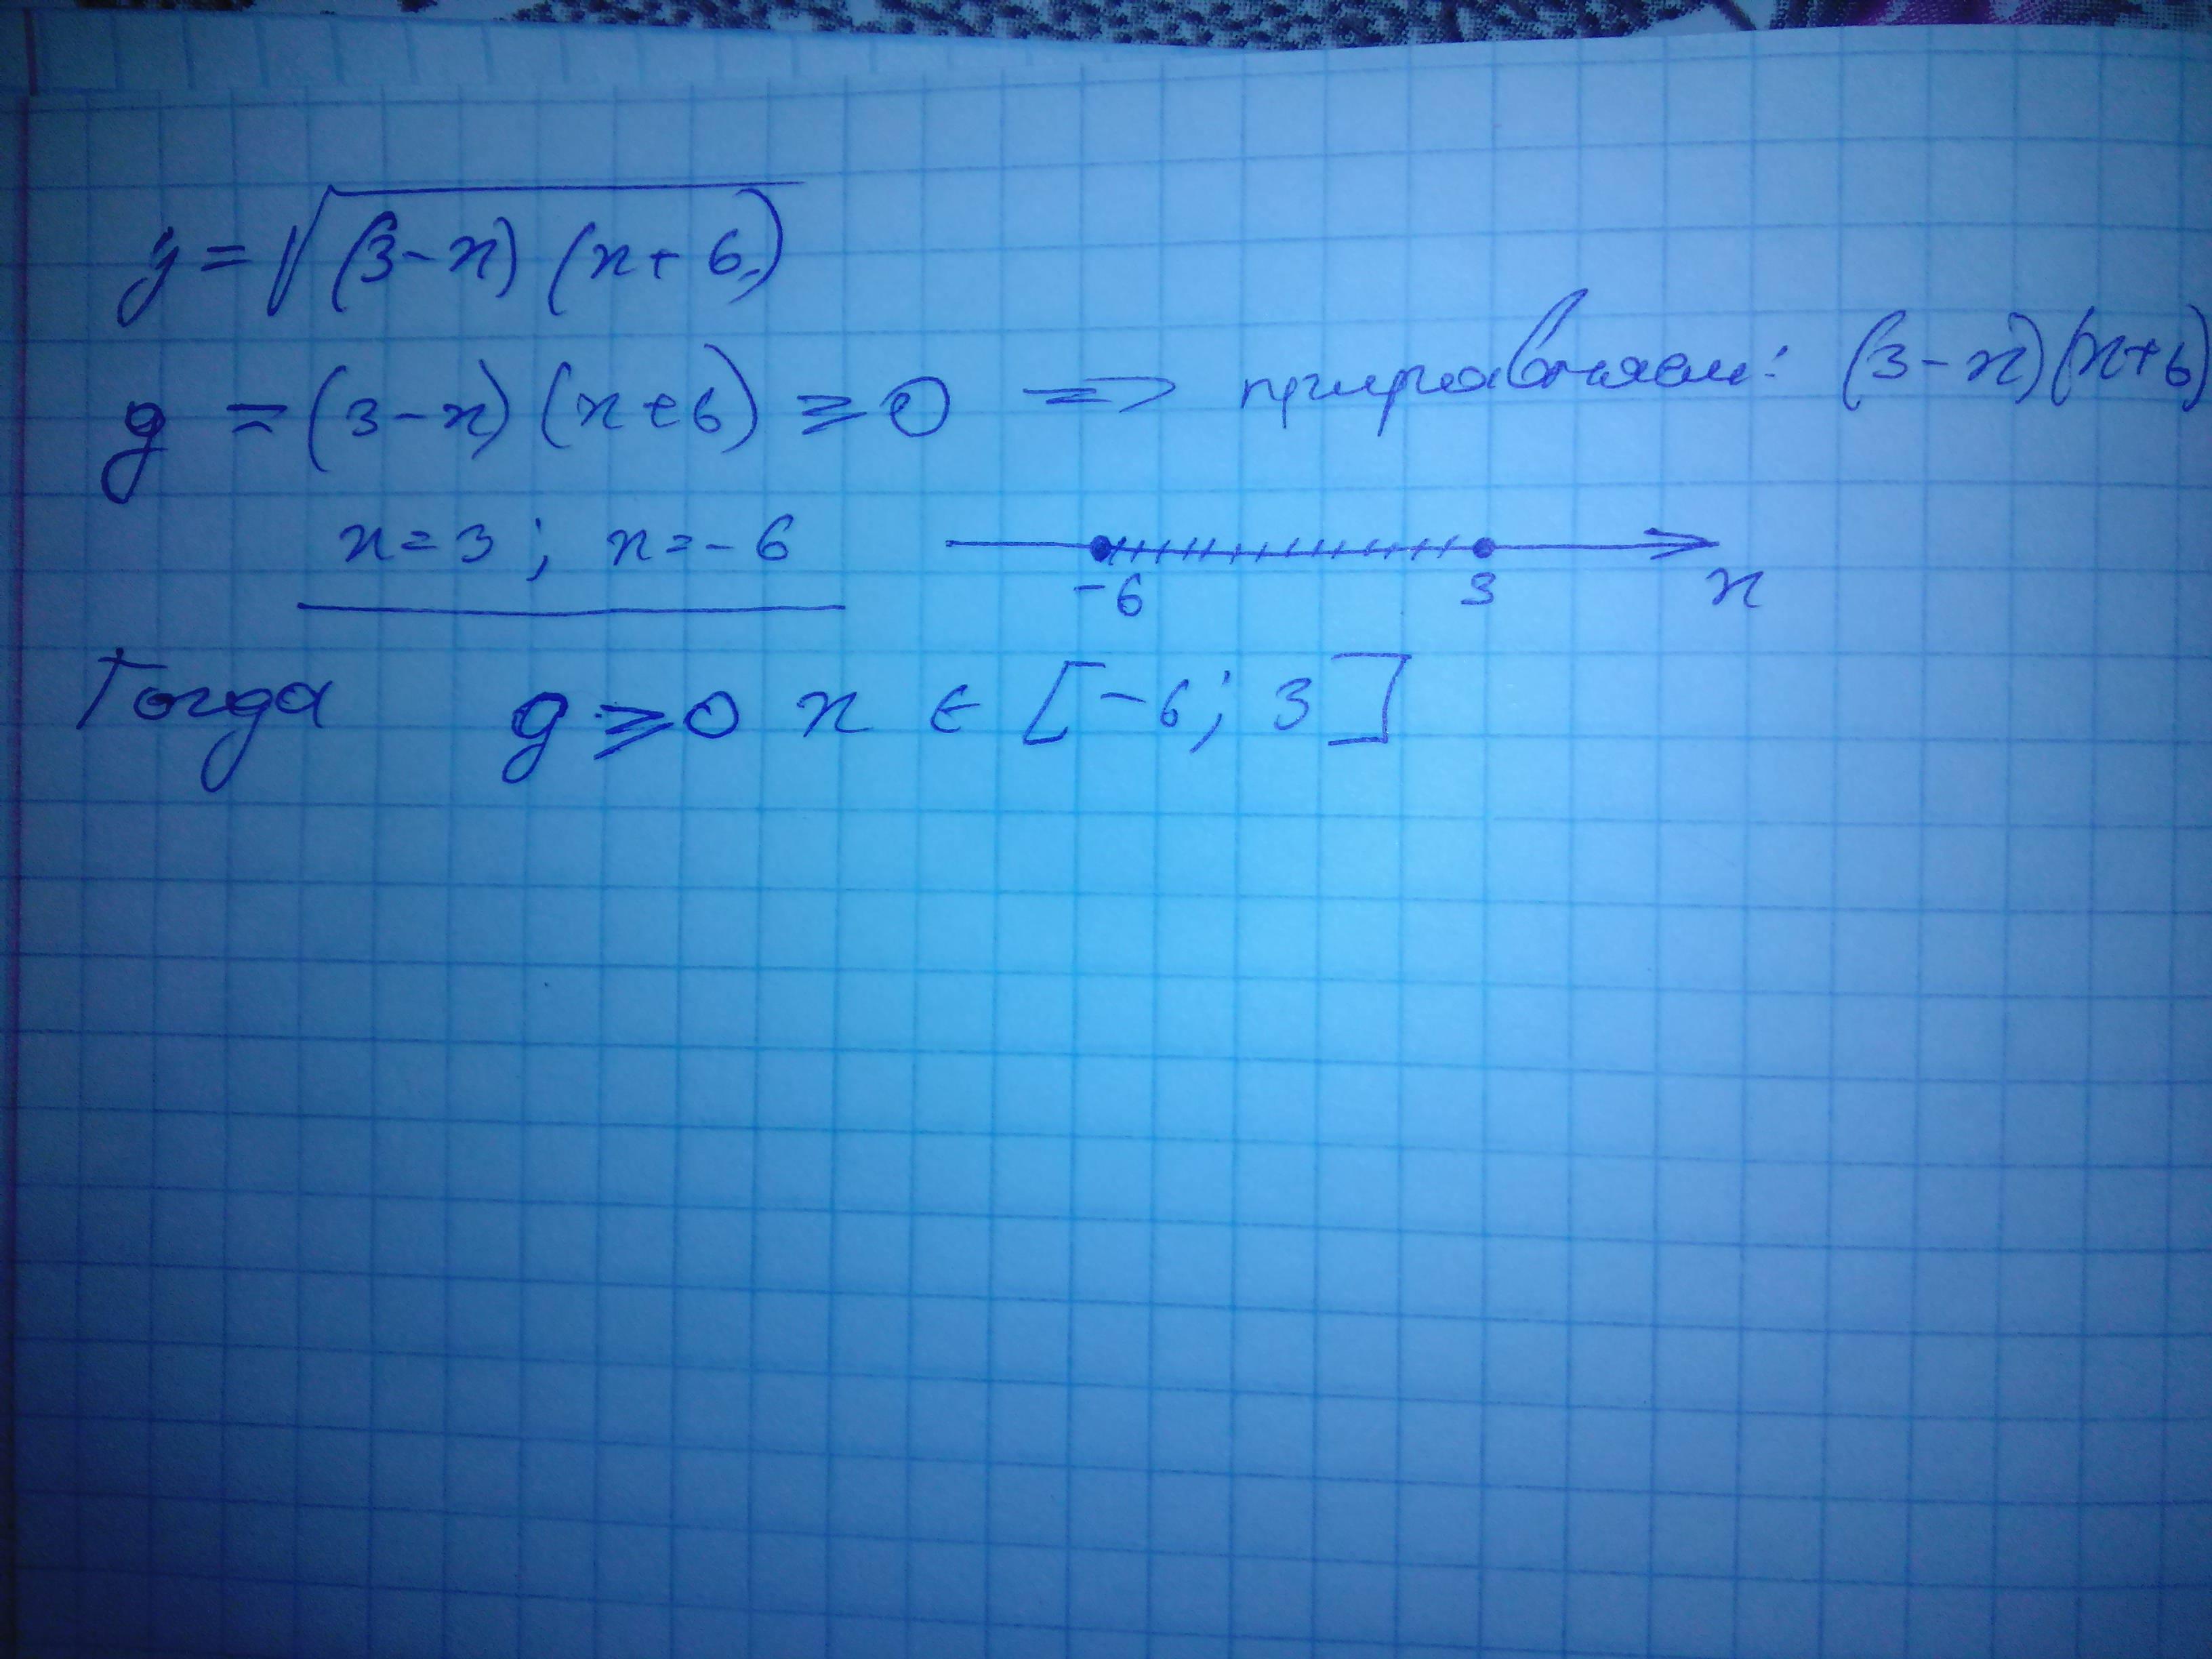 y = √(3-x)(x+6)
g = (3-x)(x+6) ≥ 0 => приравняем: (3-x)(x+6)
x=3; x=-6
-6 3 x
Тогда g ≥ 0 x ∈ [-6; 3]